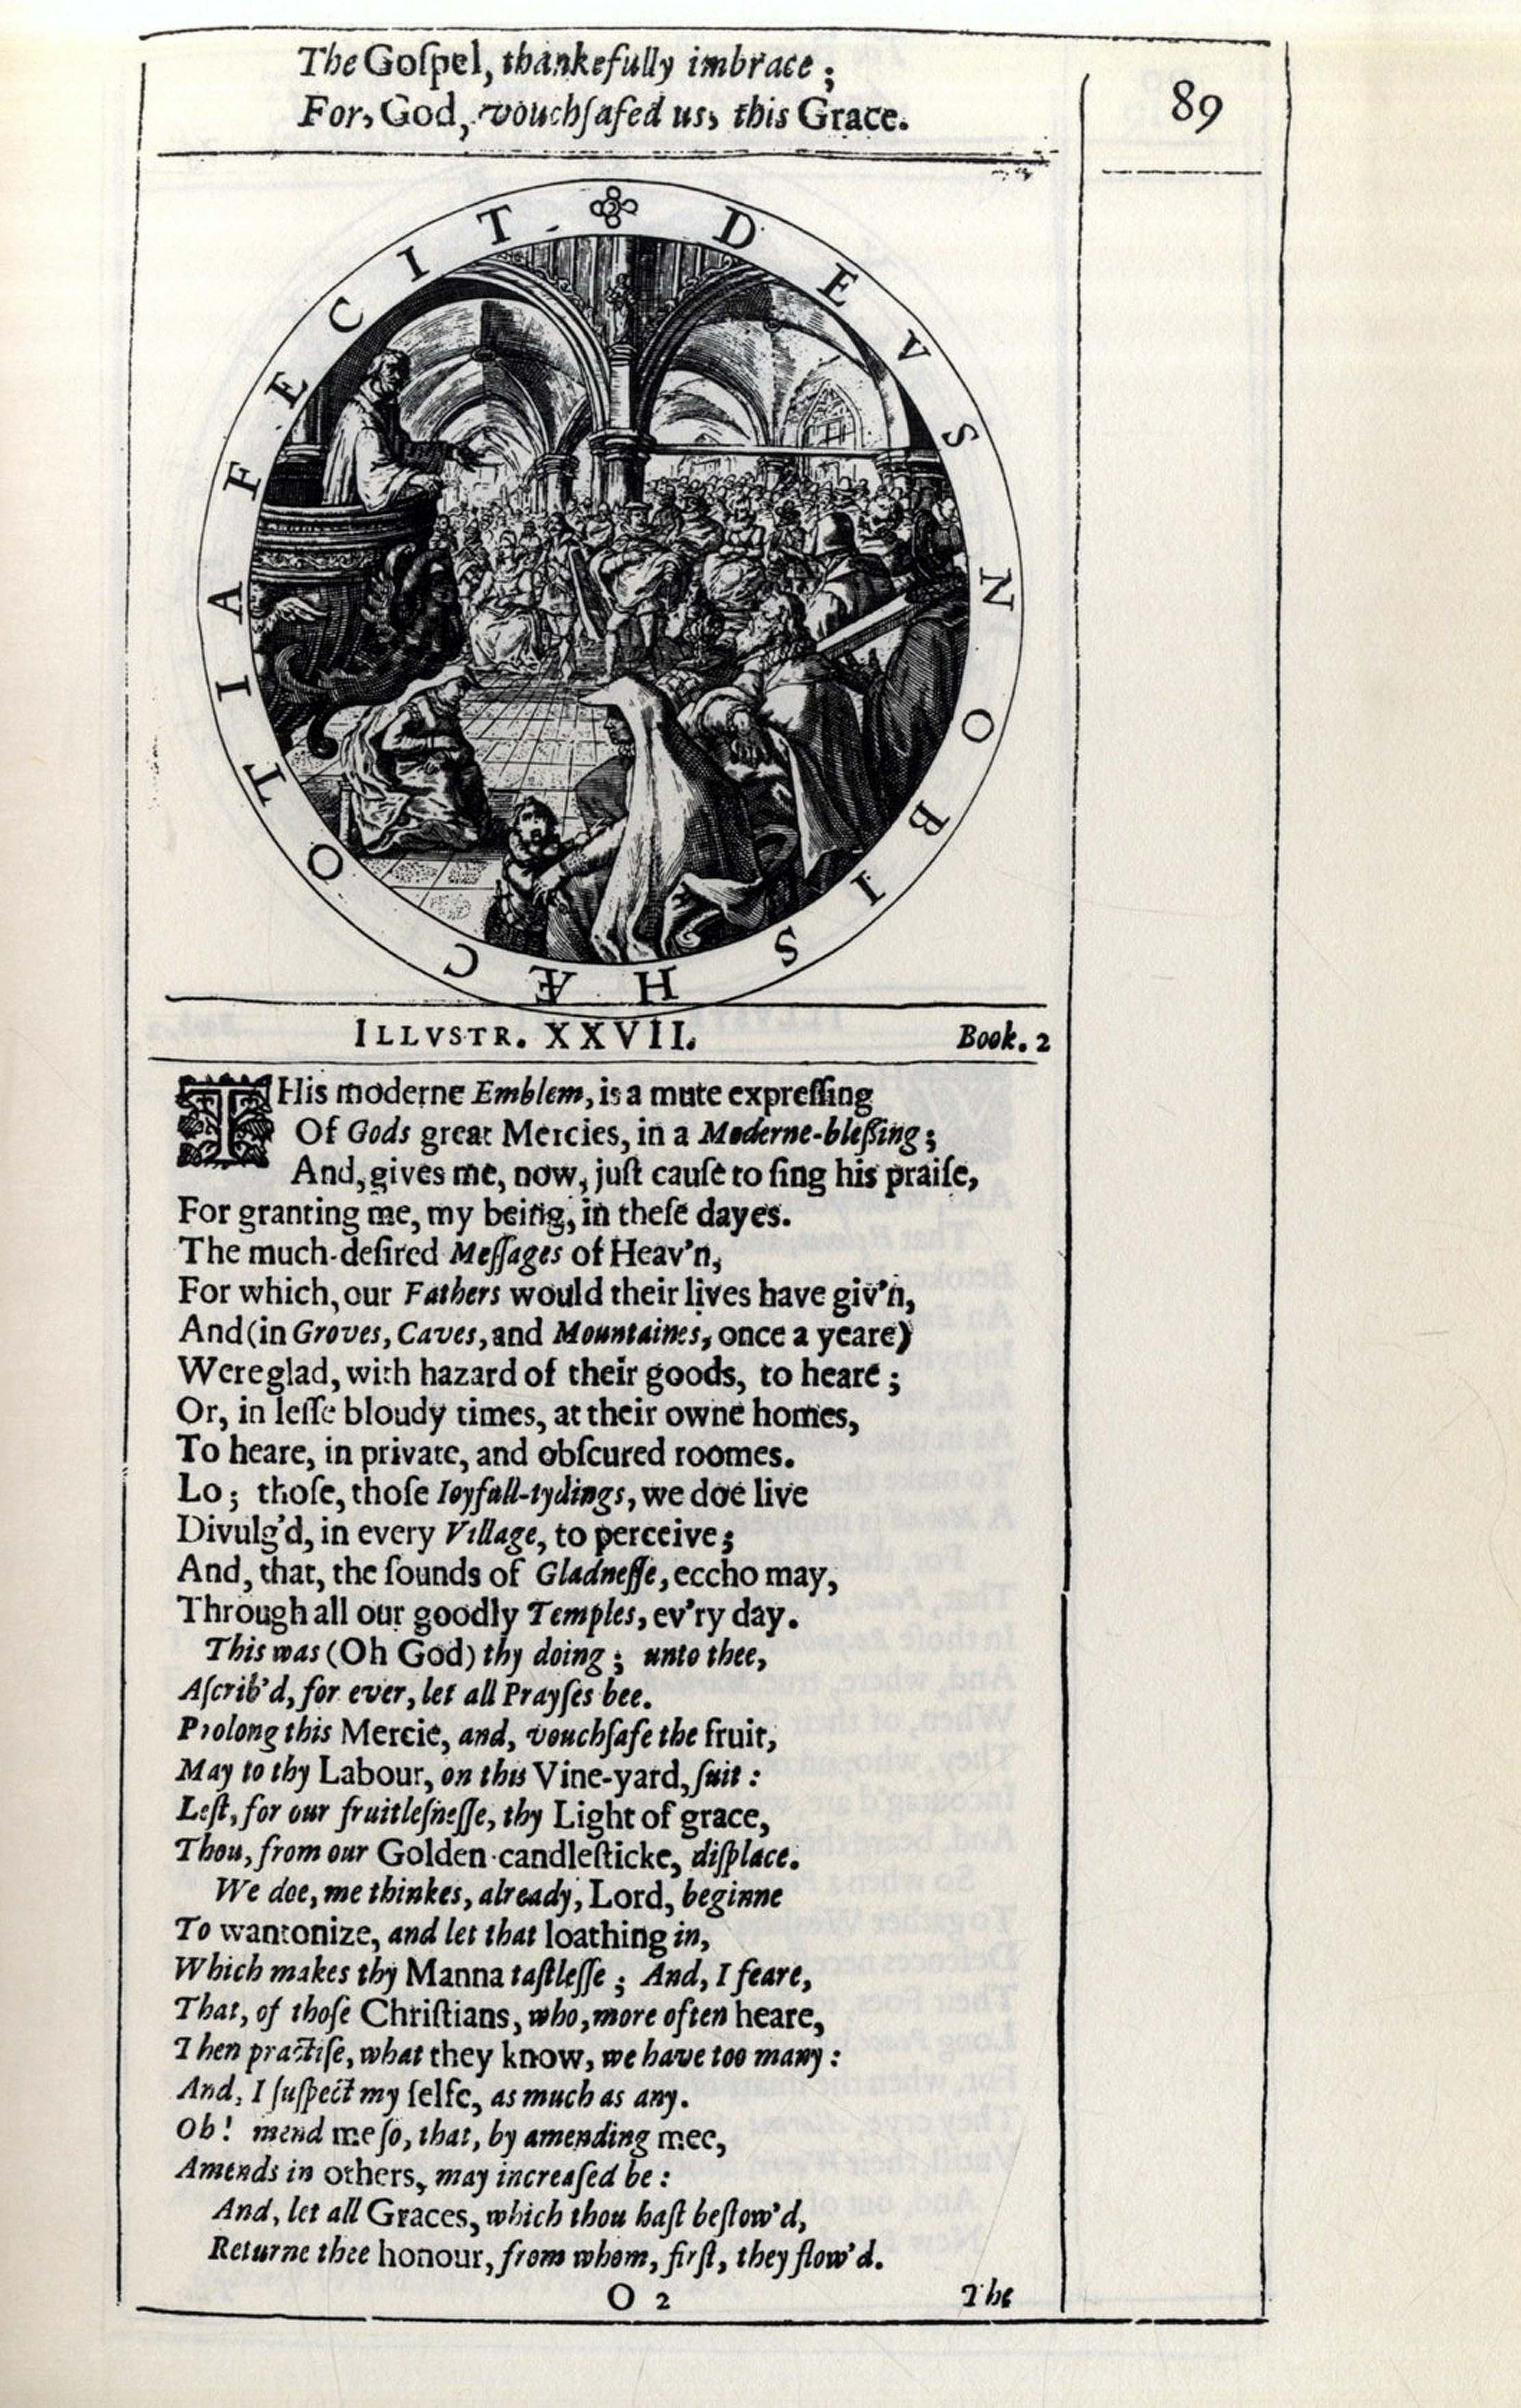 The Goſpel, thankefully imbrace ;
For, God, vouchſafed us, this Grace.
89
DEVS NOBIS HÆC OTIA FECIT.
ILLVSTR. XXVII. Book. 2
THis moderne Emblem, is a mute expreſſing
Of Gods great Mercies, in a Moderne-bleßing ;
And, gives me, now, juſt cauſe to ſing his praiſe,
For granting me, my being, in theſe dayes.
The much-deſired Meſſages of Heav'n,
For which, our Fathers would their lives have giv'n,
And (in Groves, Caves, and Mountaines, once a yeare)
Were glad, with hazard of their goods, to heare ;
Or, in leſſe bloudy times, at their owne homes,
To heare, in private, and obſcured roomes.
Lo ; thoſe, thoſe Ioyfull-tydings, we doe live
Divulg'd, in every Village, to perceive ;
And, that, the ſounds of Gladneſſe, eccho may,
Through all our goodly Temples, ev'ry day.
This was (Oh God) thy doing ; unto thee,
Aſcrib'd, for ever, let all Prayſes bee.
Prolong this Mercie, and, vouchſafe the fruit,
May to thy Labour, on this Vine-yard, ſuit :
Leſt, for our fruitleſneſſe, thy Light of grace,
Thou, from our Golden-candleſticke, diſplace.
We doe, me thinkes, already, Lord, beginne
To wantonize, and let that loathing in,
Which makes thy Manna taſtleſſe ; And, I feare,
That, of thoſe Chriſtians, who, more often heare,
Then practiſe, what they know, we have too many :
And, I ſuſpect my ſelfe, as much as any.
Oh! mend me ſo, that, by amending mee,
Amends in others, may increaſed be :
And, let all Graces, which thou haſt beſtow'd,
Returne thee honour, from whom, firſt, they flow'd.
O 2 The